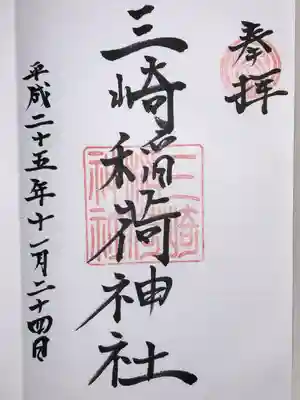 奉拝
三崎稲荷神社
平成二十五年十一月二十四日
三崎稲荷神社